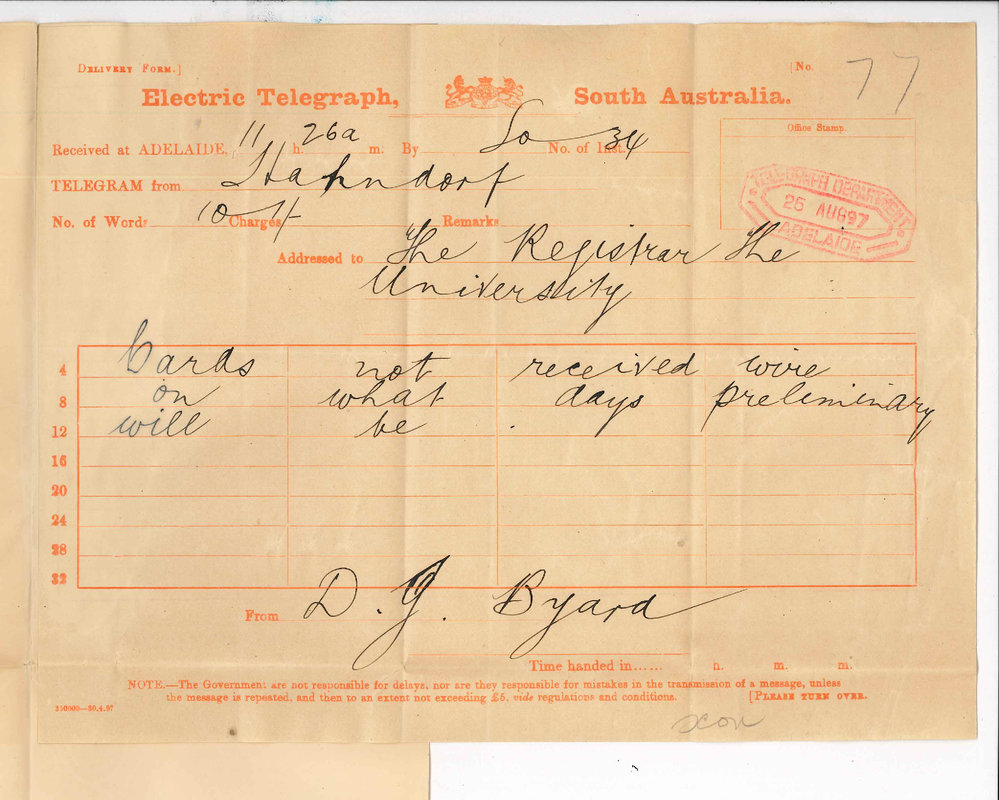 DELIVERY FORM.] [No. 77
Electric Telegraph, South Australia.
Office Stamp.
Received at ADELAIDE, 11 h. 26a m. By So No. of Inst. 34
TELEGRAM from Hahndorf
TELEGRAPH DEPARTMENT
25 AUG 97
ADELAIDE
No. of Words 10 Charges 1/- Remarks
Addressed to The Registrar The
University
4 Cards not received wire
8 on what days preliminary
12 will be .
16
20
24
28
32
From D. J. Byard
Time handed in...... h. m. m.
NOTE.—The Government are not responsible for delays, nor are they responsible for mistakes in the transmission of a message, unless
the message is repeated, and then to an extent not exceeding £5, vide regulations and conditions. [PLEASE TURN OVER.
350000—30.4.97